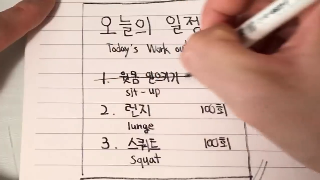 오늘의 일정
Today's Work out
1. 윗몸 일으키기
sit-up
2. 런지 100회
lunge
3. 스쿼트 100회
Squat